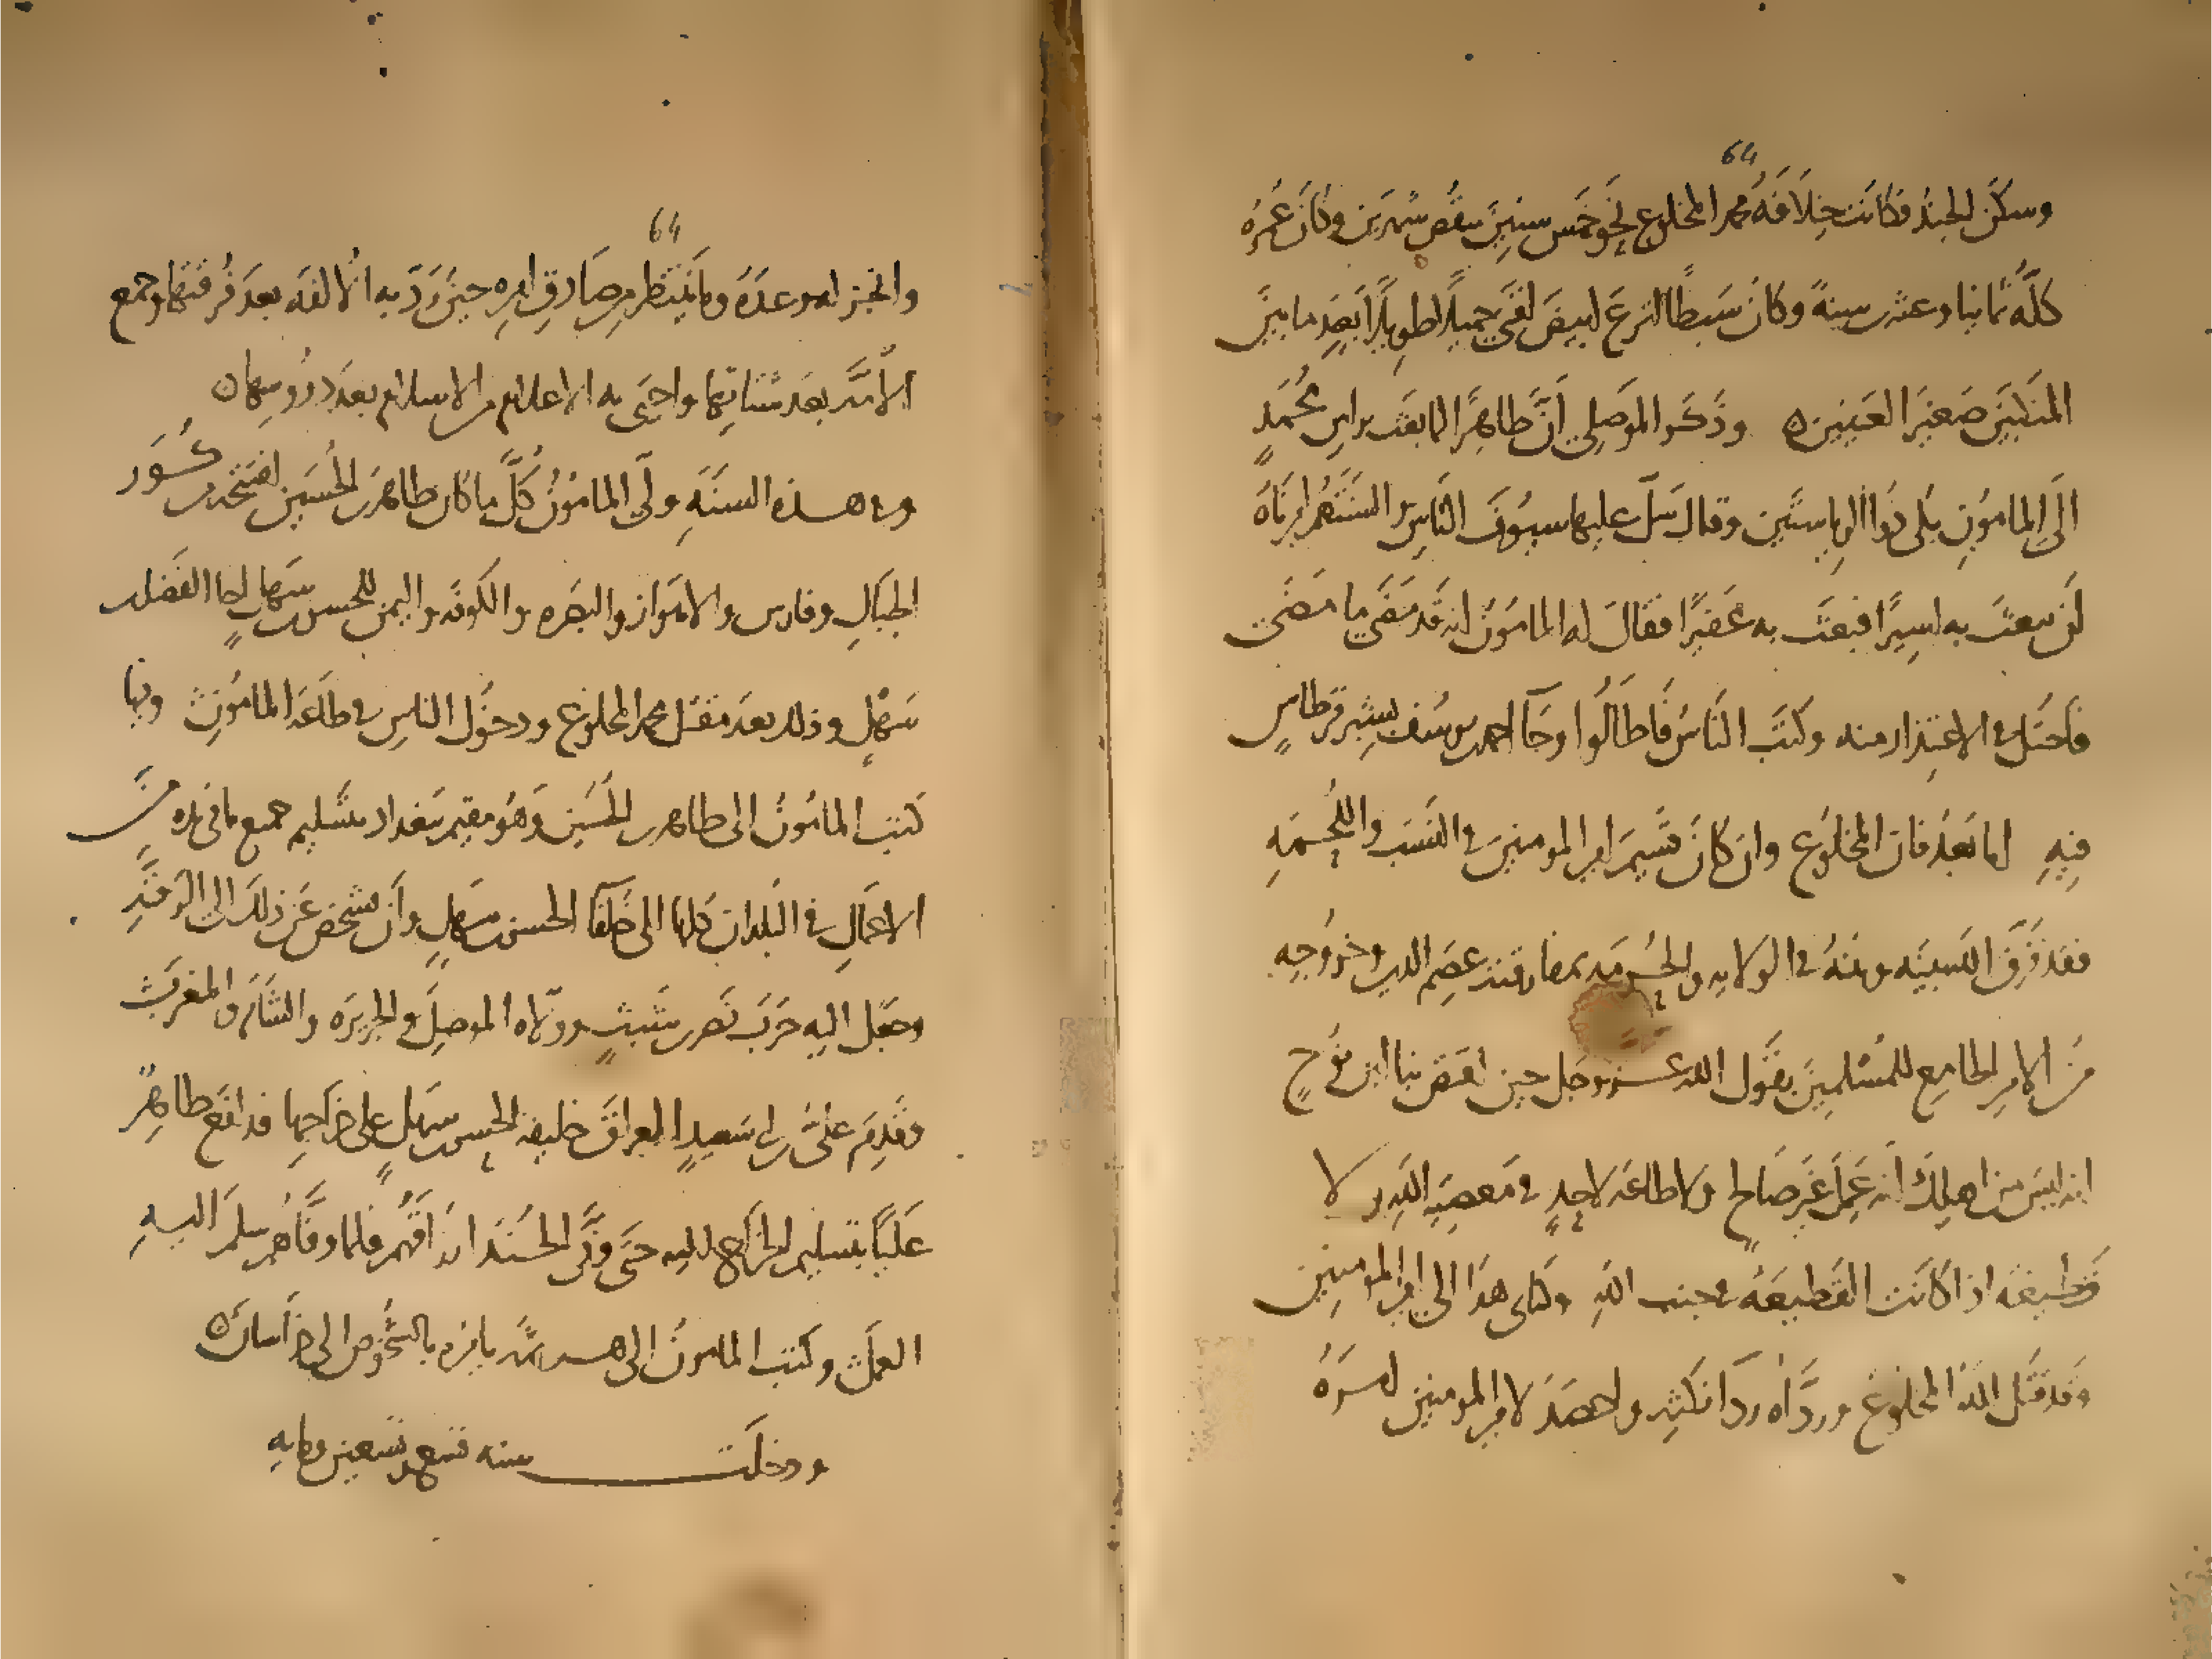 64
وسكن الجند فكانت خلافة محمد المخلوع نحو خمس سنين ينقص شهرين وكان عمره
كله ثمانيا وعشرين سنة وكان سبطا انزع ابيض اقنى جميلا طويلا بعيد ما بين
المنكبين صغير العينين ه وذكر الموصلي أن طاهرا لما بعث براس محمد
الى المامون بكى ذوا الرياستين وقال سل علينا سيوف الناس والسنتهم امرناه
ان يبعث به اسيرا فبعث به عقيرا فقال له المامون انه قد مضى ما مضى
فاحتل في الاعتذار منه وكتب الناس فاطالوا وجآ احمد بن يوسف بشبر قرطاس
فيه اما بعد فان المخلوع وان كان قسيم امير المومنين في النسب واللحمه
فقد فرق الله بينه وبينه في الولايه والحرمه بمفارقته عصم الدين وخروجه
من الامر الجامع للمسلمين يقول الله عز وجل حين اقتص نبا ابن نوح
انه ليس من اهلك انه عمل غير صالح ولا طاعه لاحد في معصيه الله ولا
قطيعة اذا كانت القطيعة في جنب الله وكتابى هذا الى امير المومنين
وقد قتل الله المخلوع وردّاه رداَ نكثه واحصد لامير المومنين امره
64
وانجز له وعده وما ينتظر من صادق امره حين رد به الالفه بعد فرقتها وجمع
الامّه بعد شتاتها واحيى به الاعلام من الاسلام بعد دروسها ه
وفى هذه السنه ولى المامون كلّ ما كان طاهر بن الحسين افتتحه من كور
الجبال وفارس والاهواز والبصره والكوفه واليمن للحسن بن سهل اخا الفضل بن
سهل وذلك بعد مقتل محمد المخلوع ودخول الناس في طاعة المامون وفيها
كتب المامون الى طاهر بن الحسين وهو مقيم ببغداد بتسليم جميع ما فى يده من
الاعمال في البلدان كلها الى خلفآ الحسن بن سهل وأن يشخص عن ذلك الى الرقة
وجعل اليه حرب نصر بن شبث وولاه الموصل والجزيره والشام والمغرب
وقدم على بن ابى سعيد العراق خليفه الحسن بن سهل على خراجها فدافع طاهر
عليا بتسليم الخراج اليه حتى وفّى الجند ارزاقهم فلما وفاهم سلم اليه
العمل وكتب المامون الى هرثمه يامره بالشخوص الى خراسان ه
ودخلت سنه تسع وتسعين ومايه